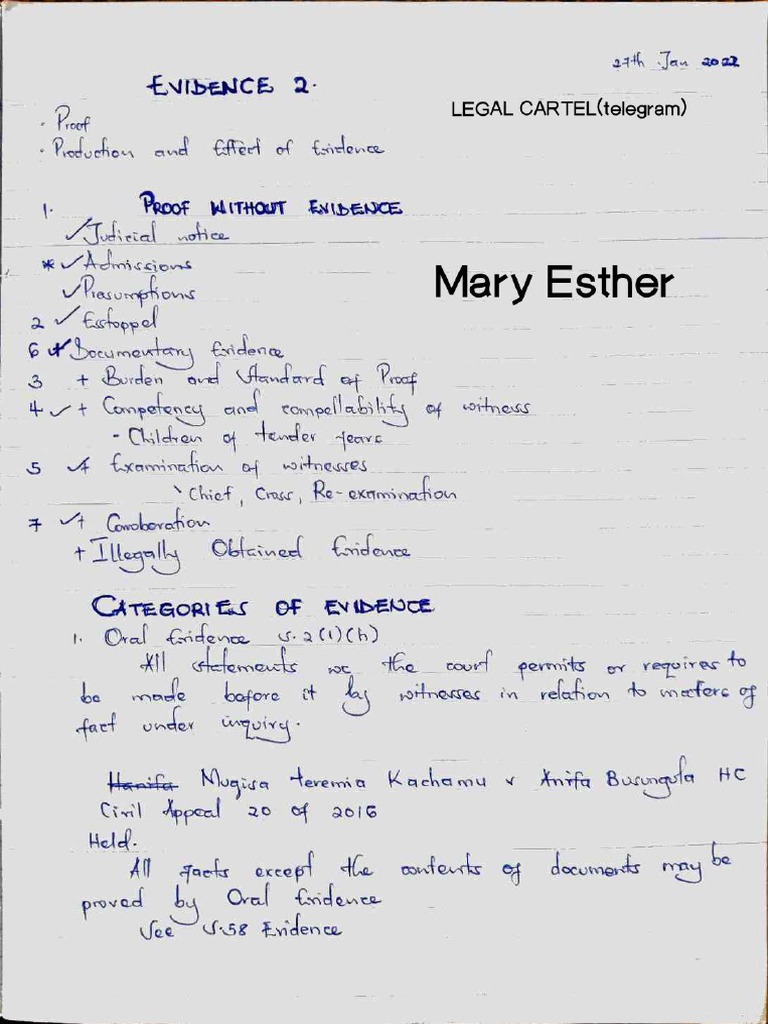 27th Jan 2022
EVIDENCE 2.
LEGAL CARTEL(telegram)
• Proof
• Production and Effect of Evidence
1. PROOF WITHOUT EVIDENCE
✓ Judicial notice
* ✓ Admissions
Mary Esther
✓ Presumptions
2 ✓ Estoppel
6 + Documentary Evidence
3 + Burden and Standard of Proof
4 ✓ + Competency and compellability of witness
- Children of tender years
5 ✓ + Examination of witnesses
Chief, Cross, Re-examination
7 ✓ + Corroboration
+ Illegally Obtained Evidence
CATEGORIES OF EVIDENCE
1. Oral Evidence s.2(1)(h)
All statements wc the court permits or requires to
be made before it by witnesses in relation to matters of
fact under inquiry.
Hanifa Mugisa Teremia Kachamu v Anifa Busungula HC
Civil Appeal 20 of 2016
Held.
All facts except the contents of documents may be
proved by Oral Evidence
See S.58 Evidence